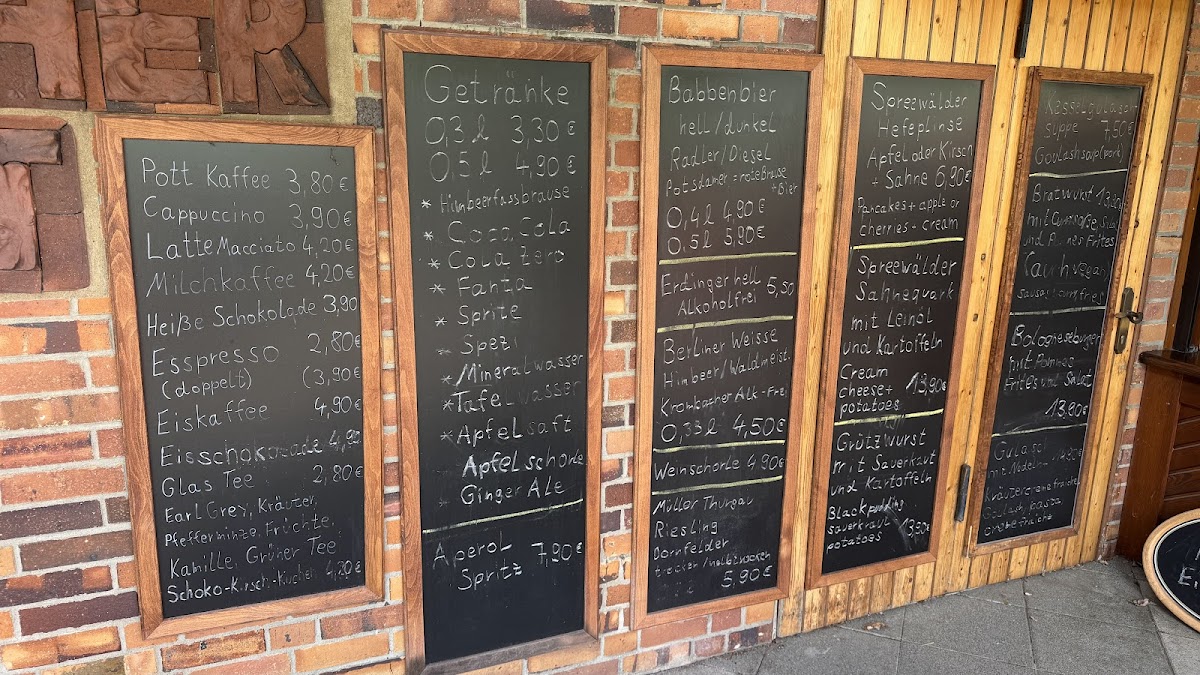 TER
T
Pott Kaffee 3,80€
Cappuccino 3,90€
Latte Macciato 4,20€
Milchkaffee 4,20€
Heiße Schokolade 3,90
Esspresso 2,80€
(doppelt) (3,90€
Eiskaffee 4,90€
Eisschokolade 4,90
Glas Tee 2,80€
Earl Grey, Kräuter,
Pfefferminze, Früchte,
Kamille, Grüner Tee
Schoko-Kirsch-Kuchen 4,20€
Getränke
0,3 l 3,30€
0,5 l 4,90€
* Himbeerfassbrause
* Coca Cola
* Cola Zero
* Fanta
* Sprite
* Spezi
* Mineralwasser
* Tafelwasser
* Apfelsaft
Apfelschorle
* Ginger Ale
Aperol 7,90€
Spritz
Babbenbier
hell/dunkel
Radler/Diesel
Potsdamer = rote Brause
+ Bier
0,4 l 4,90€
0,5 l 5,90€
Erdinger hell 5,50
Alkoholfrei
Berliner Weisse
Himbeer/Waldmeist.
Krombacher Alk-Frei
0,33 l 4,50€
Weinschorle 4,90€
Müller Thurgau
Riesling
Dornfelder
trocken/halbtrocken
5,90€
Spreewälder
Hefeplinse
Apfel oder Kirsch
+ Sahne 6,90€
Pancakes + apple or
cherries + cream
Spreewälder
Sahnequark
mit Leinöl
und Kartoffeln
Cream
cheese + 13,90€
potatoes
Grützwurst
mit Sauerkraut
und Kartoffeln
Blackpudding
sauerkraut 13,90€
potatoes
Kesselgulasch
suppe 7,50€
Goulashsoup (pork)
Bratwurst 13,90€
und Pommes Frites
Tauch vegan
Bologneseburger
mit Pommes
Frites und Salat
13,90€
Gulasch
mit Nudeln